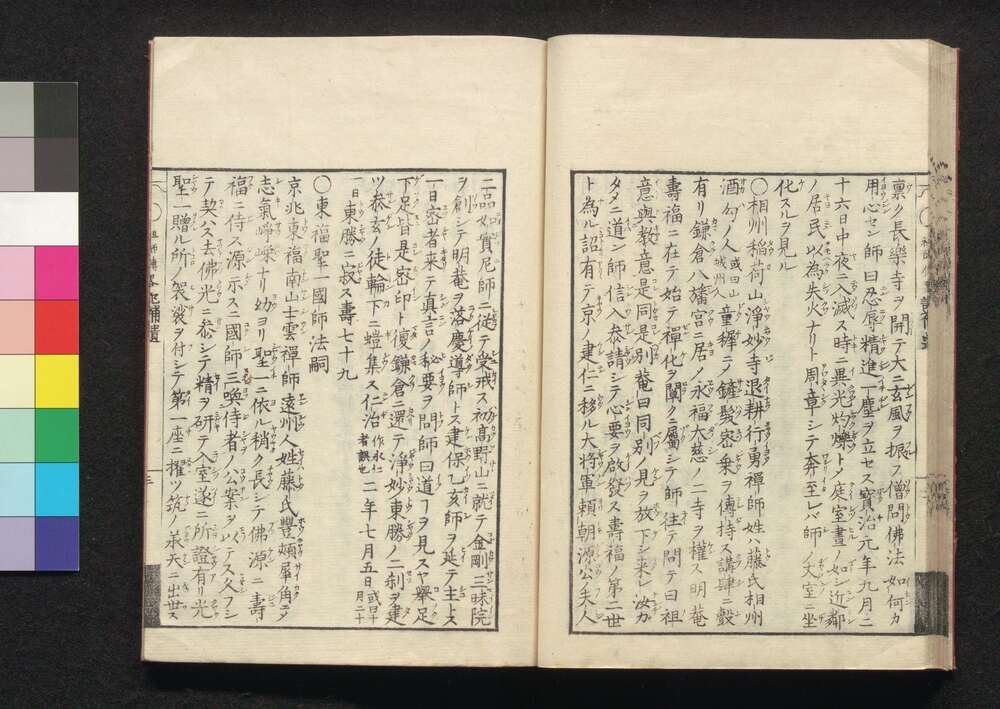 禀ノ長樂寺ヲ開テ大ニ玄風ヲ振フ僧問佛法如何カ
用心セン師曰忍辱精進一塵ヲ立セス寳治元年九月二
十六日中夜ニ入滅ス時ニ異光灼爍トノ庭室晝ノ如シ近鄰
ノ居民以為失火ナリト周章シテ奔至レバ師ノ丈室ニ坐
化スルヲ見ル
〇相州稲荷山淨妙寺退耕行勇禪師姓ハ藤氏相州
酒勾ノ人或曰山城州人童穉ニノ鏟髪密乗ヲ傳持ス講肆ニ㲉
有リ鎌倉八旛宮ニ居ノ永福大慈ノ二寺ヲ權ス明菴
壽福ニ在テ始テ禪化ヲ闡クニ屬シテ師往テ問テ曰祖
意與教意是同是別菴曰同別ノ見ヲ放下シ来レ汝カ
タメニ道ン師信入参請シテ心要ヲ啟發ス壽福ノ第二世
ト為ル詔有テ京ノ建仁ニ移ル大将軍頼朝源公夫人
二品如實尼師ニ從テ受戒ス初高野山ニ就テ金剛三昧院
ヲ創シテ明菴ヲ落慶導師トス建保乙亥師ヲ延テ主トス
一日密者来テ真言ノ秘要ヲ問師曰道フヿヲ見スヤ舉足
下足皆是密印ト復鎌倉ニ還テ淨妙東勝ノ二刹ヲ建
ツ叅玄ノ徒輪下ニ螘集ス仁治作永仁者誤也二年七月五日或曰十月二十
一日東勝ニ寂ス壽七十九
〇東福聖一國師法嗣
京兆東福南山士雲禪師遠州人姓藤氏豐頰犀角ニノ
志氣崢嶸ナリ幼ヨリ聖一ニ依ル稍ク長シテ佛源ニ壽
福ニ侍ス源示スニ國師三喚侍者ノ公案ヲ以テス久フシ
テ契ハス去佛光ニ叅シテ精ヲ研テ入室遂ニ所證有リ光
聖一贈ル所ノ袈裟ヲ付シテ第一座ニ擢ツ筑ノ承天ニ出世ス